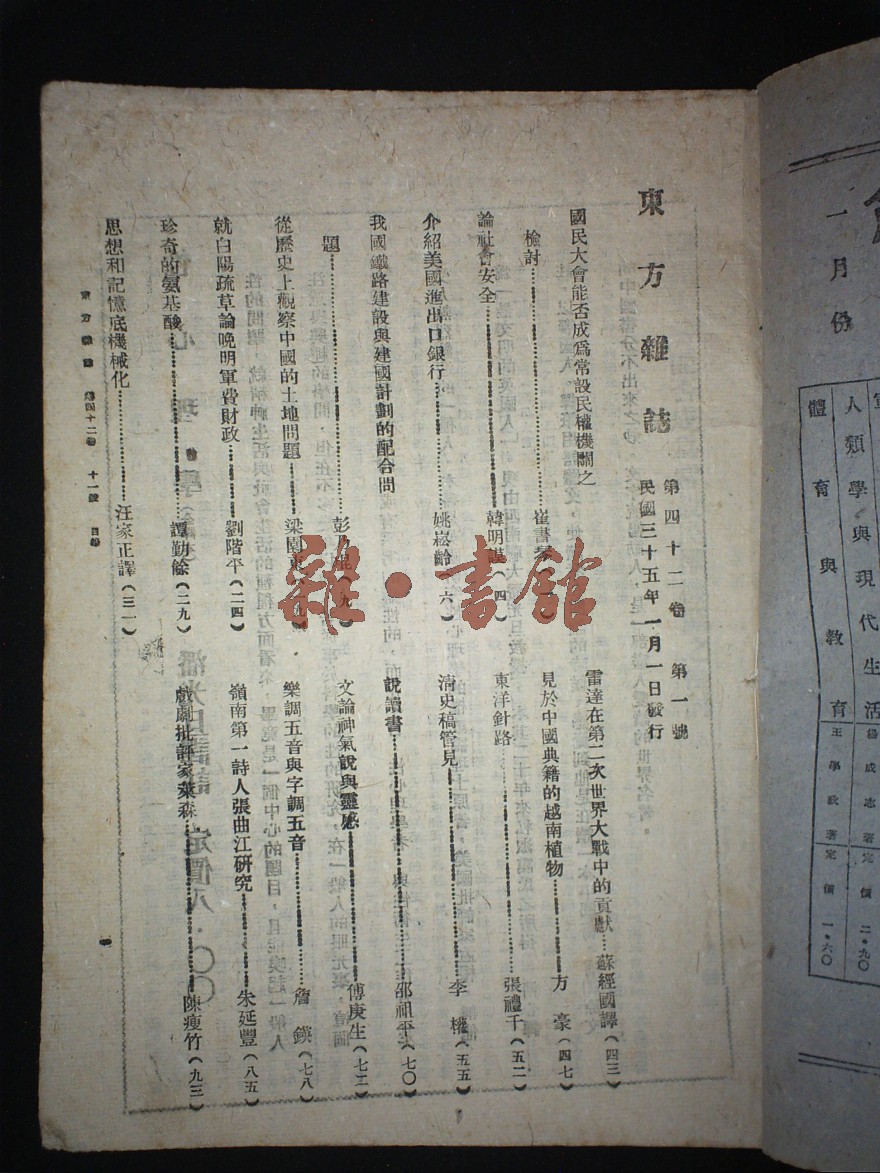 東方雜誌
第四十二卷 第一號
民國三十五年一月一日發行
國民大會能否成爲常設民權機關之
檢討……崔書
論社會安全……韓明謨(四)
介紹美國進出口銀行……姚崧齡(六)
我國鐵路建設與建國計劃的配合問
題……彭(九)
從歷史上觀察中國的土地問題……梁園東
就白陽疏草論晚明軍費財政……劉階平(二四)
珍奇的氨基酸……譚勤餘(二九)
思想和記憶底機械化……汪家正譯(三一)
雷達在第二次世界大戰中的貢獻…蘇經國譯(四三)
見於中國典籍的越南植物……方豪(四七)
東洋針路……張禮千(五二)
清史稿管見……李權(五五)
說讀書……邵祖平(七〇)
文論神氣說與靈感……傅庚生(七二)
樂調五音與字調五音……詹鍈(七八)
嶺南第一詩人張曲江研究……朱延豐(八五)
戲劇批評家萊森……陳瘦竹(九三)
東方雜誌 第四十二卷 十一號 目錄
一
雜·書館
一月份
人類學與現代生活 楊成志著 定價二·九〇
體育與教育 王學政著 定價一·六〇